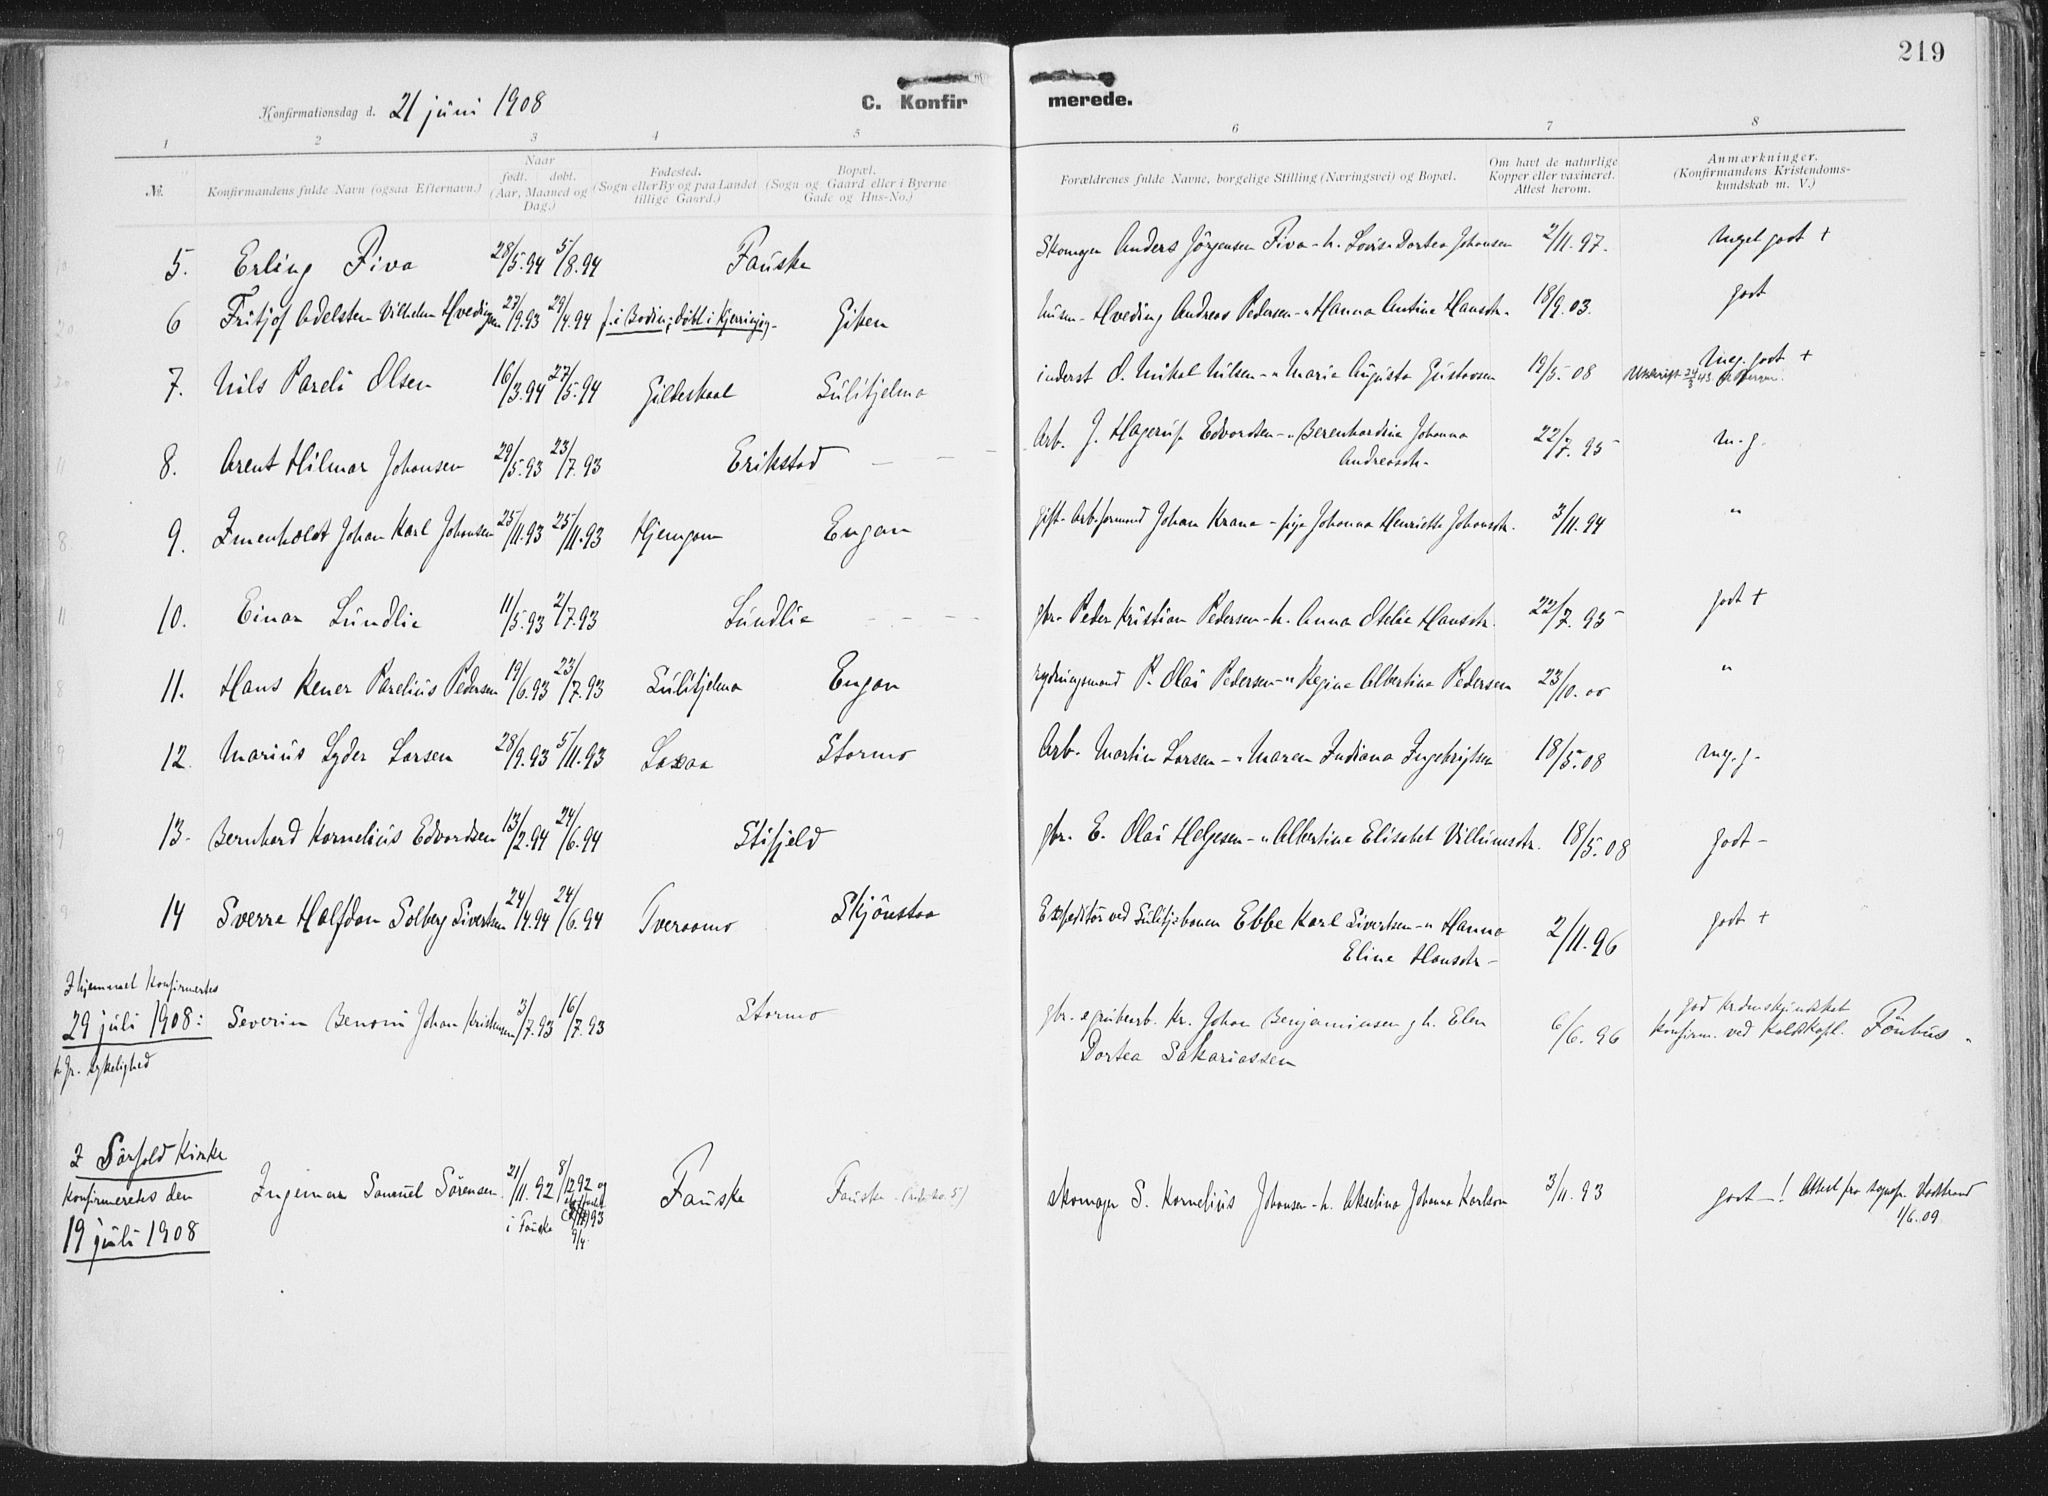 219
Konfirmationsdag d. 21 juni 1908
C. Konfirmerede.
1 2 3 4 5 6 7 8
№. Konfirmandens fulde Navn (ogsaa Efternavn.) Naar født. døbt. (Aar, Maaned og Dag.) Fødested. (Sogn eller By og paa Landet tillige Gaard.) Bopæl. (Sogn og Gaard eller i Byerne Gade og Hus-No.) Forældrenes fulde Navne, borgelige Stilling (Næringsvei) og Bopæl. Om havt de naturlige Kopper eller vaxineret. Attest herom. Anmærkninger. (Konfirmandens Kristendomskundskab m. V.)
5. Erling Fiva 28/5.94 5/8.94 Fauske Skomager Anders Jörgensen Fiva - h. Lovise Dortea Johansen 2/11.97. Meget godt +
6 Fritjof Adelsten Vilhelm Hvedingsen 27/9.93 29/4.94 f. i Bodin, döbt i Kjerringøy - Giken Hveding Andreas Pedersen - " Hanna Antine Hansdtr. 18/9.03. godt
7. Nils Pareli Olsen 16/3.94 27/5.94 Gildeskaal Sulitjelma inderst O. Mikal Nilsen - " Maria Augusta Gustavsen 19/5.08 Meg. godt +
8. Arent Hilmar Johansen 29/5.93 23/7.93 Erikstad Arb. J. Hagerup Edvardsen - " Berenhardine Johanna Andreasdtr. 22/7.95 m.g.
9. Johan Karl Johansen 25/11.93 25/11.93 Hjemgam Engan gift. Arb.formand Johan Krana - pige Johanna Henriette Johansdtr. 3/11.94 "
10. Einar Lundlie 11/5.93 2/7.93 Lundlie gbr. Peder Kristian Pedersen - h. Anna Otelie Hansdtr. 22/7.95 godt +
11. Hans Rener Parelius Pedersen 19/6.93 23/7.93 Sulitjelma Engan rydningsmand P. Olai Pedersen - " Regine Albertine Pedersen 23/10.00 "
12. Marius Lyder Larsen 28/9.93 5/11.93 Laxaa Stormo Arb. Martin Larsen - " Maren Indiana Ingebrigtsen 18/5.08 meg. g.
13. Bernhard Kornelius Edvardsen 13/2.94 24/6.94 Stifjeld gbr. E. Olai Helgesen - " Albertine Elisabet Villumsdtr. 18/5.08 godt -
14 Sverre Halfdan Solberg Sivertsen 24/4.94 24/6.94 Tveraamo Skjönstaa Expeditör ved Sulitjbanen Ebbe Karl Sivertsen - " Hanna Eline Hansdtr. 2/11.96 godt +
I hjemmet konfirmertes
29 juli 1908: Severin Benoni Johan Kristensen 3/7.93 16/7.93 Stormo gbr. & grubearb. Kr. Johan Benjaminsen g h. Elen Dortea Sakariassen 6/6.96 god krdmskundskab konfirm. ved Kaldskapl. Fonhus.
p. gr. sykelighed
I Sörfold Kirke
konfirmeredes den
19 juli 1908 Ingemar Samuel Sörensen 21/11.92 8/12 92 i Fauske Fauske Fauske skomager S. Kornelius Johansen - h. Akseline Johanna Karlsen 3/11.93 godt ! Attest fra sognepr. 1/6.09